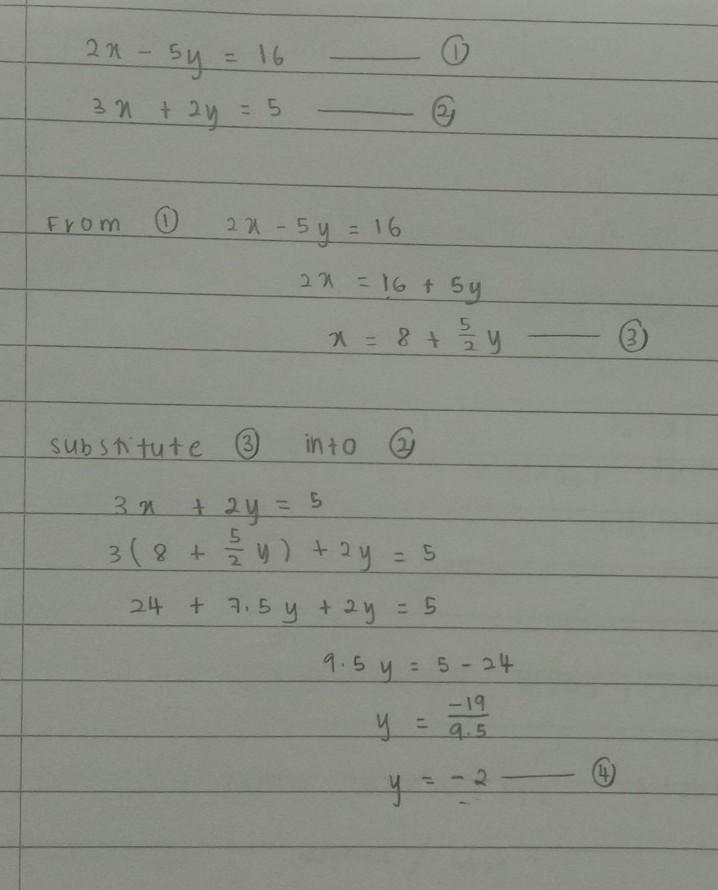 2x - 5y = 16 —— ①
3x + 2y = 5 —— ②
From ① 2x - 5y = 16
2x = 16 + 5y
x = 8 + 5/2 y —— ③
substitute ③ into ②
3x + 2y = 5
3(8 + 5/2 y) + 2y = 5
24 + 7.5y + 2y = 5
9.5y = 5 - 24
y = -19/9.5
y = -2 —— ④